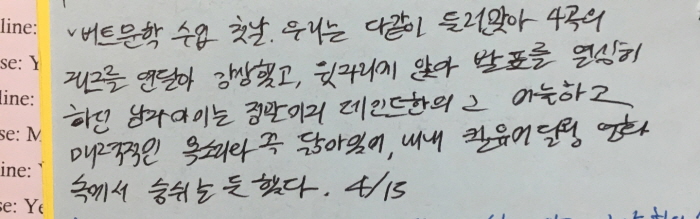 line:
se: Y
line:
se: M
ine:
se: Ye
v 비트문학 수업 첫날. 우리는 다같이 둘러앉아 4곡의
재즈를 연달아 감상했고, 뒷자리에 앉아 발표를 열심히
하던 남자아이는 정말이지 데인드한의 그 어눌하고
매력적인 목소리와 꼭 닮아있어, 내내 킬유어달링 영화
속에서 숨쉬는 듯 했다. 4/15